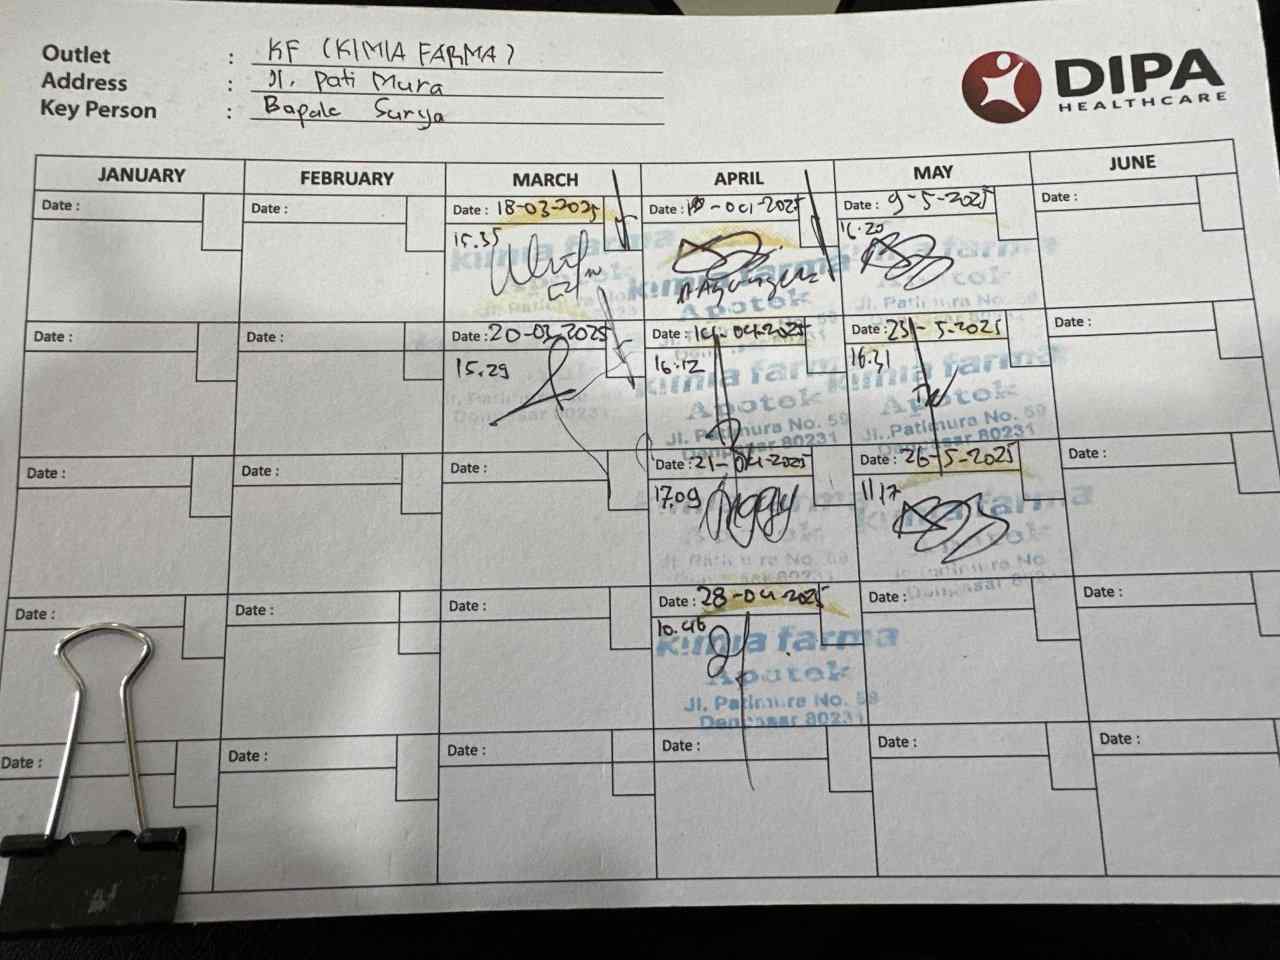 Outlet : KF (KIMIA FARMA)
Address : Jl. Pati Mura
Key Person : Bapak Surya
DIPA
HEALTHCARE
JANUARY FEBRUARY MARCH APRIL MAY JUNE
Date : Date : Date : 18-03-2025 Date : -04-2025 Date : 9-5-2025 Date :
15.35 16.20
kimia farma kimia farma
Apotek
Jl. Patimura No. 59
Date : Date : Date : 20-03-2025 Date : 14-04-2025 Date : 23-5-2025 Date :
15.29 16.12 16.31
kimia farma kimia farma
Apotek Apotek
Jl. Patimura No. 59 Jl. Patimura No. 59
Denpasar 80231 Denpasar 80231
Date : Date : Date : Date : 21-04-2025 Date : 26-5-2025 Date :
17.09 11.17
kimia farma
Date : Date : Date : Date : 28-04-2025 Date : Date :
10.46
kimia farma
Apotek
Jl. Patimura No. 59
Denpasar 80231
Date : Date : Date : Date : Date : Date :